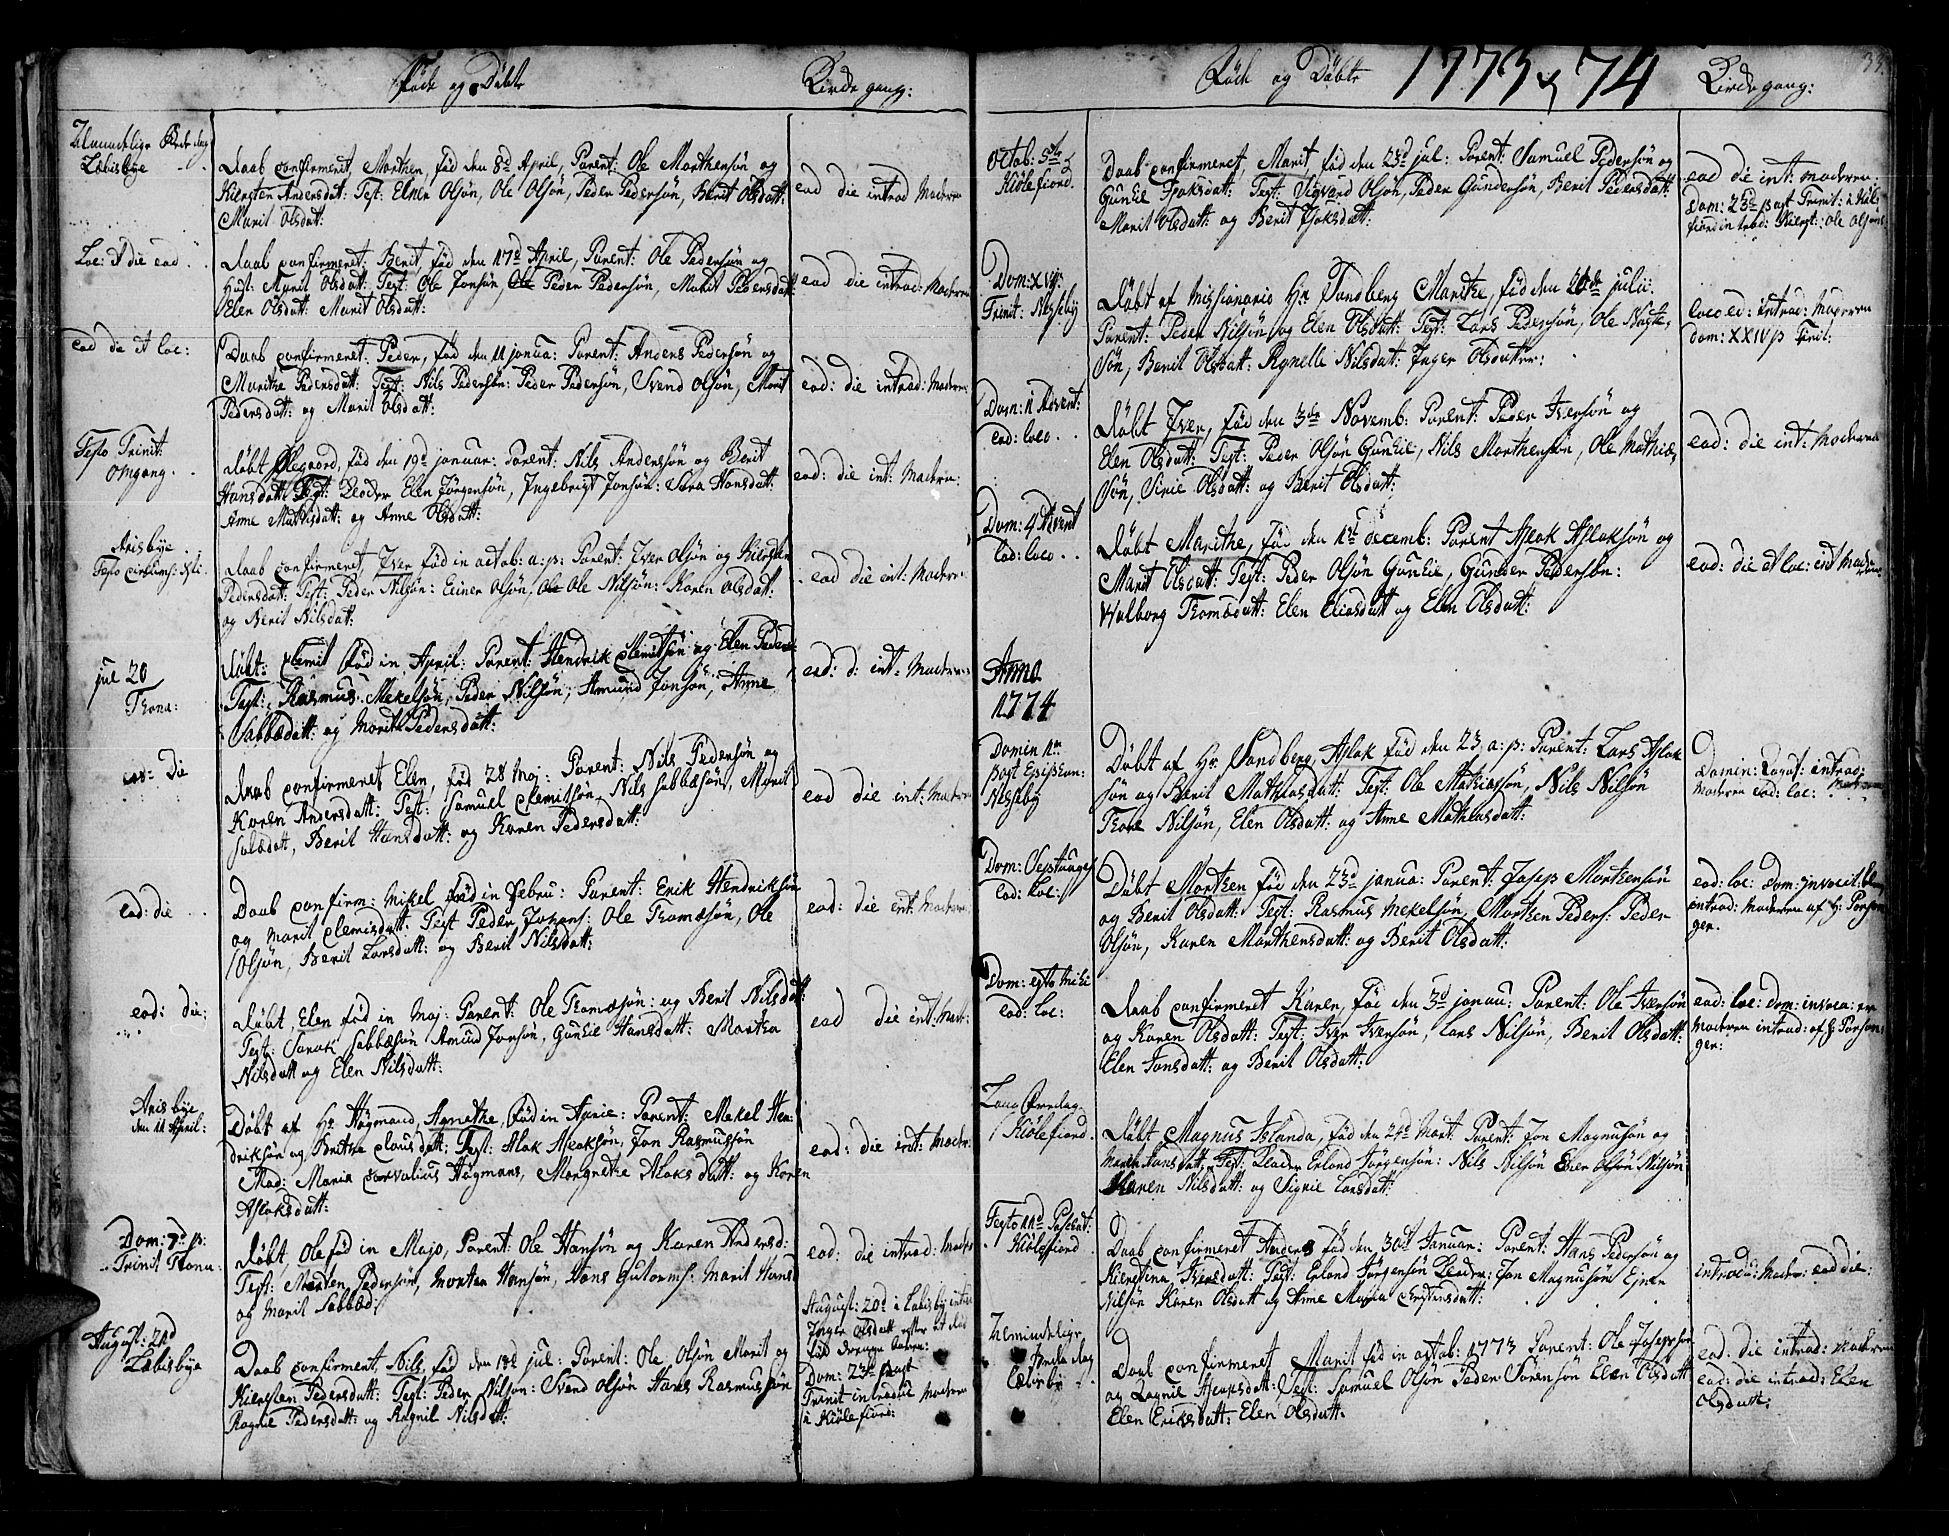 Föde og Döbte
Kirke gang:
Almindelige Bededag
Læbisbye
Daab confirmeret, Morthen, föd den 8d April, Parent: Ole Morthensön og
Kiersten Andersdatt: Test: Elner Olsön, Ole Olsön, Peder Pedersön, Berit Olsdatt:
Marit Olsdatt:
ead die introd Moderen
Loc: et die ead
Daab confirmeret: Berit föd den 17d April, Parent: Ole Pedersön og
Hust: Marit Olsdatt: Test: Ole Jonsön, Ole Peder Pedersön, Marit Pedersdatt
Elen Olsdatt: Marit Olsdatt:
ead die introd: Moderen
ead die et loc:
Daab confirmeret: Peder, föd den 11 janua: Parent: Anders Pedersön og
Marithe Pedersdatt: Test: Nils Pedersön: Peder Pedersön, Svend Olsön, Marit
Pedersdatt: og Marit Olsdatt:
ead: die introd: Modern:
Festo Trinit:
Omgang
Döbt Olegaard, föd den 19d januar: Parent: Nils Anderssön og Berit
Hansdatt Test: Klocker Elen Jörgensön, Ingebrigt Jonsön: Sara Hansdatt:
Anne Mathisdatt: og Anne Olsdatt:
ead: die int: Modern:
Arisbye
Festo circums: Xsti
Daab confirmeret, Iver föd in octob: a: p: Parent: Iver Olsön og Kiersten
Pedersdatt: Test: Peder Nilsön: Einer Olsön, Ole Ole Nilsön: Karen Olsdatt:
og Berit Nilsdat:
ead die int: Modern
jul 20
Thona:
Döbt: Clemit föd in April: Parent: Hendrik Clemitsön og Elen Peders:
Test: Rasmus Mekelsön, Peder Nilsön, Amund Jonsön, Anne
Sabbædatt: og Marit Pedersdatt:
ead: d: int: Modern
ead: die
Daab confirmeret Elen, föd 28 Maj: Parent: Nils Pedersön og
Karen Andersdatt: Test: Samuel Clemitsön, Nils Sabbæsön, Marit
Sabædatt, Berit Hansdatt: og Karen Pedersdatt:
ead die int: Modern
ead: die
Daab confirm: Mikel föd in Febru: Parent: Erik Hendriksön
og Marit Clemisdatt: Test Peder Johans: Ole Thomæsön, Ole
Olsön, Berit Larsdatt: og Berit Nilsdatt:
ead: die int: Modern
ead: die:
Döbt, Elen föd in Maj: Parent: Ole Thomæsön: og Berit Nilsdatt:
Test: Sarak Sabbæsön Amund Jonsön, Gunhil Hansdatt: Martha
Nilsdatt og Elen Nilsdatt:
ead die int: Mod:
Arisbye
den 11 April:
Döbt af Hr Högmand, Agnethe, föd in Aprie: Parent: Mekel Hen-
driksön og Brithe Clausdatt: Test: Aslak Aslaksön, Jon Rasmussön
Mad: Maria Corvalius Högmans, Margrethe Aslaksdatt: og Karen
Aslaksdatt:
ead: die int: Modr:
Dom: 7d p:
Trinit Thona:
Döbt, Ole föd in Majo, Parent: Ole Hansön og Karen Andersd:
Test: Morten Pedersön, Morten Hansön, Hans Gutorms: Marit Hans
og Marit Sabbæd:
ead: die introd: Modr
August: 20d i Læbisby introd
Inger Olsdatt
August: 21d
Læbisbye
Daab confirment, Nils, föd den 18d jul: Parent: Ole Olsön Marit og
Kiersten Pedersdatt: Test: Peder Nilson: Svend Olsön Hans Rasmussön
Ragnie Pedersdatt: og Ragnil Nilsdatt:
Dom: 23d post
Trinit introd: Modern
i Kiölefiord:
Föde og Döbte
1773 & 74
Kirke gang:
33.
Octob: 5te
Kiölefiord.
Daab confirmeret, Marit föd den 23d jul: Parent: Samuel Pedersön og
Gunhil Isaksdat: Test: Sigvard Olsön, Peder Gundersön, Berit Pedersdatt:
Marit Olsdatt: og Berit Isaksdatt:
ead die int: Modern:
Dom: 23d post Trinit: i Kiöle
fiord introd: Kierst: Ole Olsöns
Dom: XVI p:
Trinit: Nesseby
Döbt af Missionario Hr Sandberg Marithe, föd den 24de julii:
Parent: Peder Nilsön og Elen Olsdatt: Test: Lars Pedersön, Ole
Sön, Berit Olsdatt: Rynelle Nilsdatt: Inger Olsdatter:
loco ed: introd: Moderen
Dom: XXIV p Trinit:
Dom: 1 Advent:
Ead: loco
Döbt Iver, föd den 3de Novemb: Parent: Peder Iversön og
Elen Olsdatt: Test: Peder Olsön Gunhie, Nils Morthensön, Ole Mathie,
Sön, Sirie Olsdatt: og Berit Olsdatt:
ead: die int: Moderen
Dom: 4 Advent
Ead: loco
Döbt Marithe, föd den 1st decemb: Parent Aslak Aslaksön og
Marit Olsdatt: Test: Peder Olsön Gunhie, Gunder Pedersön:
Walborg Thomæsdatt: Elen Eliasdatt og Elen Olsdatt:
ead: die et loc: int Modern
Anno
1774
Domin 1m
post Epiphan:
Nesseby
Döbt af Hr Sandberg Aslak föd den 23 a: p: Parent: Lars Aslak
sön og Berit Mathiasdatt: Test: Ole Mathiassön, Nils Nilsön
Thore Nilsön, Elen Olsdatt: og Anne Mathiasdatt:
Domin: introd:
Modern ead: loc:
Dom: Septuages
Ead: loc:
Döbt Morthen föd den 23d janua: Parent: Josep Morthensön
og Berit Olsdatt: Test: Rasmus Mekelsön, Morthen Peders: Peder
Olsön, Karen Morthensdatt: og Berit Olsdatt:
ead: loc: dom: invocit:
introd: Modern af Hr Porsan
ger.
Dom: esto mihi
ead: loc:
Daab confirmeret Karen, föd den 3d janua: Parent: Ole Iversön
og Karen Olsdatt: Test: Iver Iversön, Lars Nilsön, Berit Olsdatt:
Elen Jonsdatt: og Berit Olsdatt:
ead: loc: dom: invoca: er
Modern introd: af Hr Porsan
ger:
Lang Fredag
Kiölefiord.
Döbt Magnus Islanda, föd den 24d Mart: Parent: Jon Magnusön og
Maren Hansdatt: Test: Klocker Erlend Jörgensön: Nils Nilsön Einer Olsön Nilsön
Karen Nilsdatt: og Signie Larsdatt:
Festo IId Paschat:
Kiölefiord
Daab confirmeret Anders föd den 30d Januar: Parent: Hans Pedersön og
Kierstina Iversdatt: Test: Erland Jörgensön Klocker: Jon Magnusön Ejner
Nilsön Karen Olsdatt og Anne Maria Christensdatt:
introdu: Moder: ead die:
Almindelige
Bededag
Læbisby
Daab confirmeret Marit föd in octob: 1773 Parent: Ole Josepsön
og Ragnie Jsaksdatt: Test: Samuel Olsön Peder Sörensön Elen Olsdatt
Elen Eriksdatt: Elen Olsdatt:
ead: die introd: Modern
ead: die introd: Elen
Olsdatt: